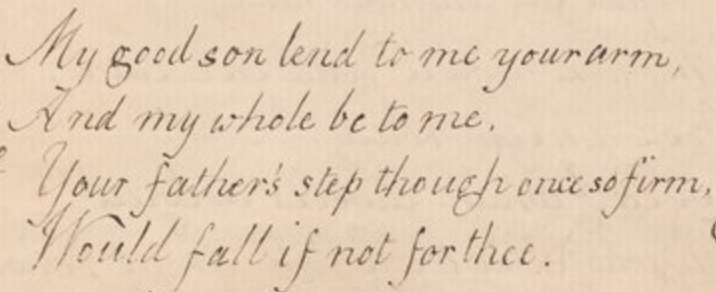 My good son lend to me your arm,
And my whole be to me.
Your father's step though once so firm,
Would fall if not for thee.